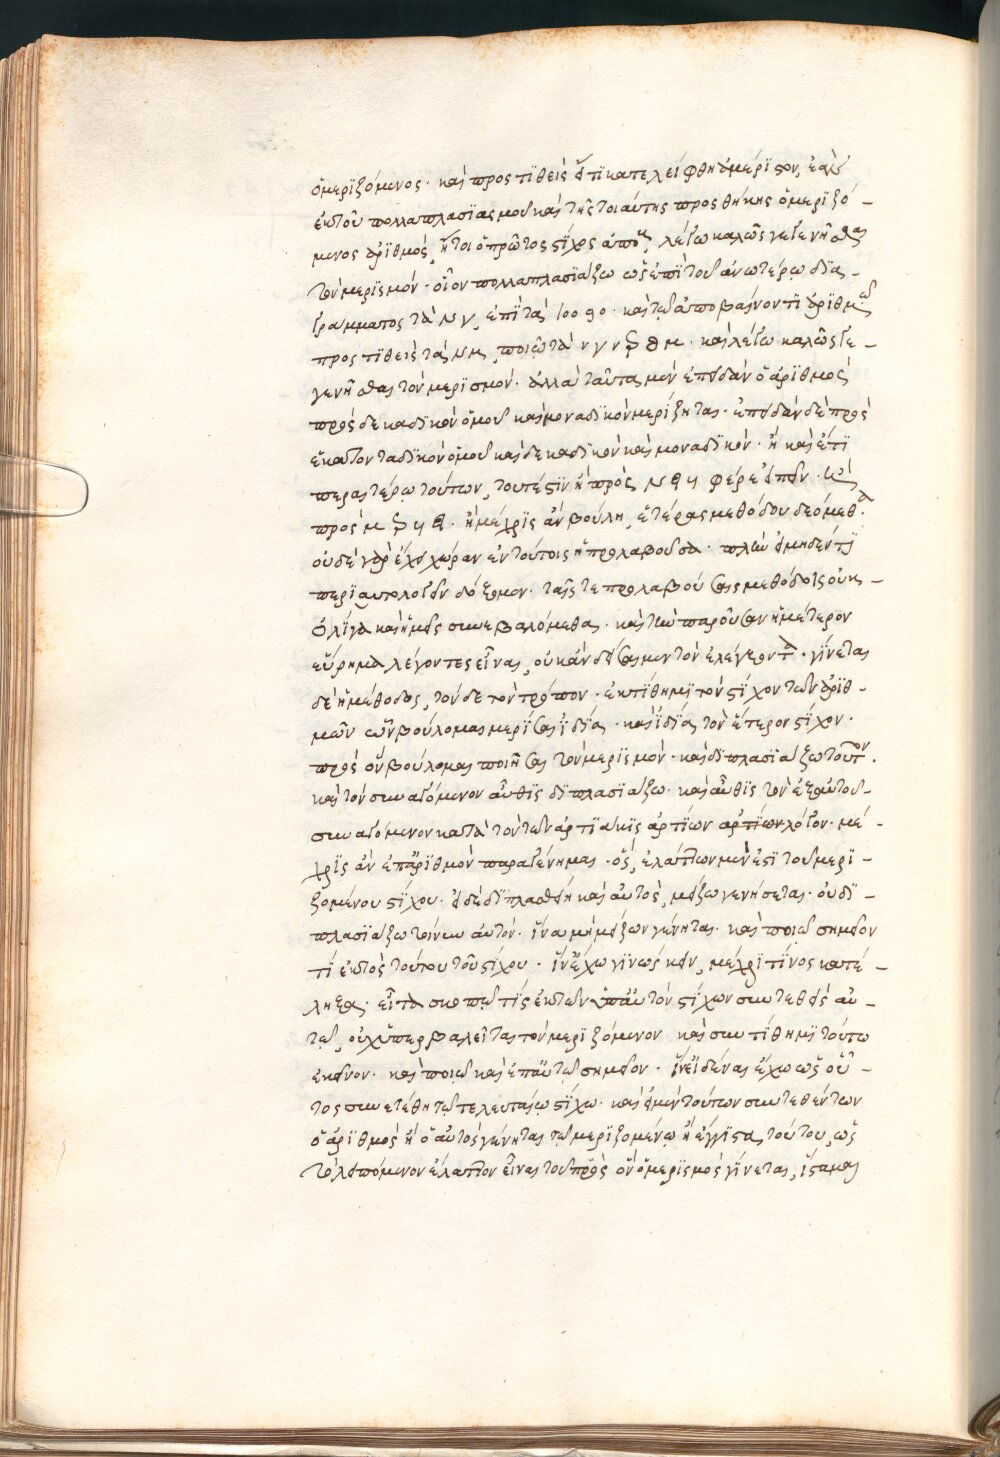 ὁ μεριζόμενος· καὶ προστιθεὶς εἴ τι κατελείφθη ἀμέριστον, ἐὰν
ἐκ τοῦ πολλαπλασιασμοῦ καὶ τῆς τοιαύτης προσθήκης ὁ μεριζό-
μενος ἀριθμός, ἤτοι ὁ πρῶτος στίχος λέγω καλῶς γεγενῆσθαι
τὸν μερισμόν· οἷον πολλαπλασιάζω ὡς ἐπὶ τοῦ ἀνωτέρω δια-
γράμματος τὰ ἐπὶ τὰς καὶ τῷ ἀποβαίνοντι ἀριθμῷ
προστιθεὶς τὰς ποιῶ τὰ καὶ λέγω καλῶς γε-
γενῆσθαι τὸν μερισμόν· ἀλλὰ ταῦτα μὲν ἐπειδὰν ὁ ἀριθμὸς
πρὸς δεκαδικὸν ὁμοῦ καὶ μοναδικὸν μερίζηται· ἐπειδὰν δὲ πρὸς
ἑκατονταδικὸν ὁμοῦ καὶ δεκαδικὸν καὶ μοναδικόν· ἢ καὶ ἔτι
περαιτέρω τούτων, τουτέστιν ἢ πρὸς φέρε εἰπεῖν· ἢ
πρὸς ἢ μέχρις ἂν βούλῃ, ἑτέρας μεθόδου δεόμεθα·
οὐδὲ γὰρ ἔχει χώραν ἐν τούτοις ἡ προλαβοῦσα· πλὴν εἰ μηδέν τι
περιαυτολογεῖν δόξομεν· ταῖς τε προλαβούσαις μεθόδοις οὐκ
ὀλίγα καὶ ἡμεῖς συνεβαλόμεθα· καὶ τὴν παροῦσαν ἡμέτερον
εὕρημα λέγοντες εἶναι, οὐκ ἂν δείσαιμεν τὸν ἐλέγξοντα· γίνεται
δὲ ἡ μέθοδος, τόνδε τὸν τρόπον· ἐκτίθημι τὸν στίχον τῶν ἀριθ-
μῶν ὧν βούλομαι μερίσαι ἰδίᾳ· καὶ ἰδίᾳ τὸν ἕτερον στίχον·
πρὸς ὃν βούλομαι ποιῆσαι τὸν μερισμόν· καὶ διπλασιάζω τοῦτον·
καὶ τὸν συναγόμενον αὖθις διπλασιάζω· καὶ αὖθις τὸν ἐξ αὐτοῦ
συναγόμενον κατὰ τὸν τῶν ἀρτιάκις ἀρτίων λόγον· μέ-
χρις ἂν ἐπ' ἀριθμὸν παραγένημαι· ὃς, ἐλάττων μέν ἐστι τοῦ μερι-
ζομένου στίχου· εἰ δὲ διπλασθείη καὶ αὐτός, μείζω γενήσεται· οὐ δι-
πλασιάζω τοίνυν αὐτόν· ἵνα μὴ μείζων γένηται· καὶ ποιῶ σημεῖον
τὶ ἐκτὸς τούτου τοῦ στίχου· ἵν' ἔχω γινώσκειν, μέχρι τίνος κατέ-
ληξα· εἶτα σκοπῶ τίς ἐκ τῶν ὑπὲρ αὐτὸν στίχων συντεθεὶς αὐ-
τῷ, οὐχ ὑπερβαλεῖται τὸν μεριζόμενον καὶ συντίθημι τούτῳ
ἐκεῖνον· καὶ ποιῶ καὶ ἐπ' αὐτῷ σημεῖον· ἵν' εἰδέναι ἔχω ὡς οὗ-
τος συνετέθη τῷ τελευταίῳ στίχῳ· καὶ εἰ μὲν τούτων συντεθέντων
ὁ ἀριθμὸς ἢ ὁ αὐτὸς γένηται τῷ μεριζομένῳ ἢ ἔγγιστα τούτου, ὡς
τὸ λειπόμενον ἔλαττον εἶναι τοῦ πρὸς ὃν ὁ μερισμὸς γίνεται, ἵσταμαι